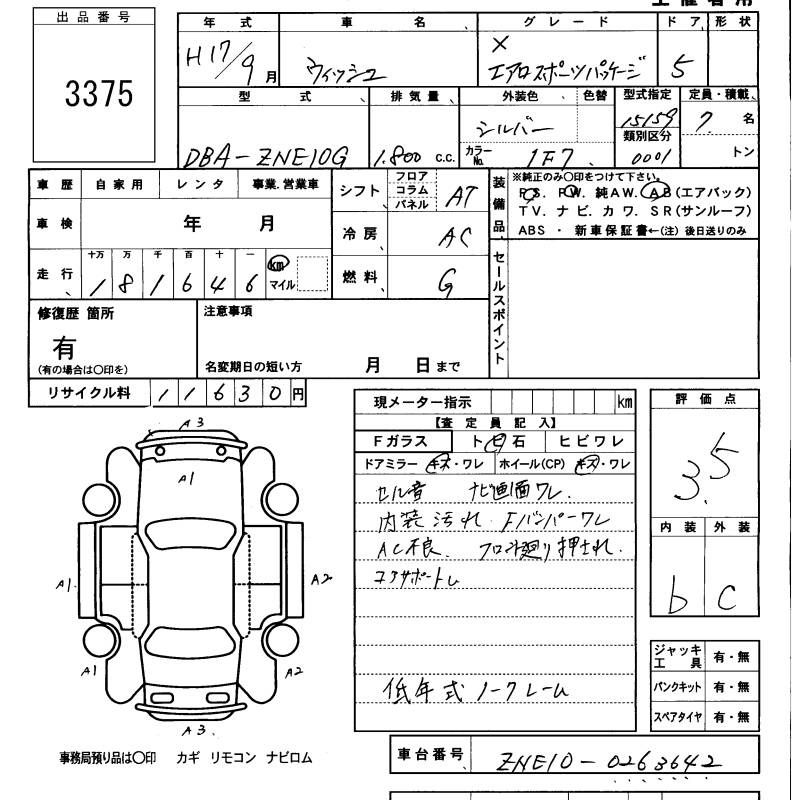 出品番号
3375
年式 車名 グレード ドア 形状
H17/9月 ウィッシュ X エアロスポーツパッケージ 5
型式 排気量 外装色 色替 型式指定 定員・積載
DBA-ZNE10G 1.800 c.c. シルバー 15159 7 名
カラーNo. 1F7 類別区分 0001 トン
車歴 自家用 レンタ 事業.営業車
車検 年 月
走行 十万 万 千 百 十 一
1 8 1 6 4 6 km マイル
シフト フロア コラム パネル AT
冷房 AC
燃料 G
装備品 ※純正のみ〇印をつけて下さい。
P.S. P.W. 純AW. AB(エアバック)
TV. ナビ. カワ. SR(サンルーフ)
ABS ・ 新車保証書←(注) 後日送りのみ
セールスポイント
修復歴 箇所
有
(有の場合は〇印を)
注意事項
名変期日の短い方 月 日まで
リサイクル料 11630円
現メーター指示 km
【査定員記入】
Fガラス トビ石 ヒビワレ
ドアミラー キズ・ワレ ホイール(CP) キズ・ワレ
セル音 ナビ画面ワレ.
内装汚れ Fバンパーワレ
AC不良. フロント廻り押され.
コアサポートレ
低年式 ノークレーム
評価点
3.5
内装 外装
b C
ジャッキ工具 有・無
パンクキット 有・無
スペアタイヤ 有・無
A3
A1
A1
A2
A1
A2
A3.
事務局預り品は〇印 カギ リモコン ナビロム
車台番号 ZNE10-0263642